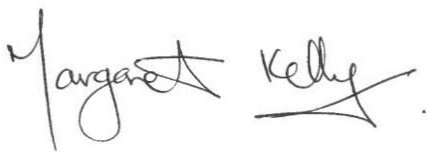 Margaret Kelly